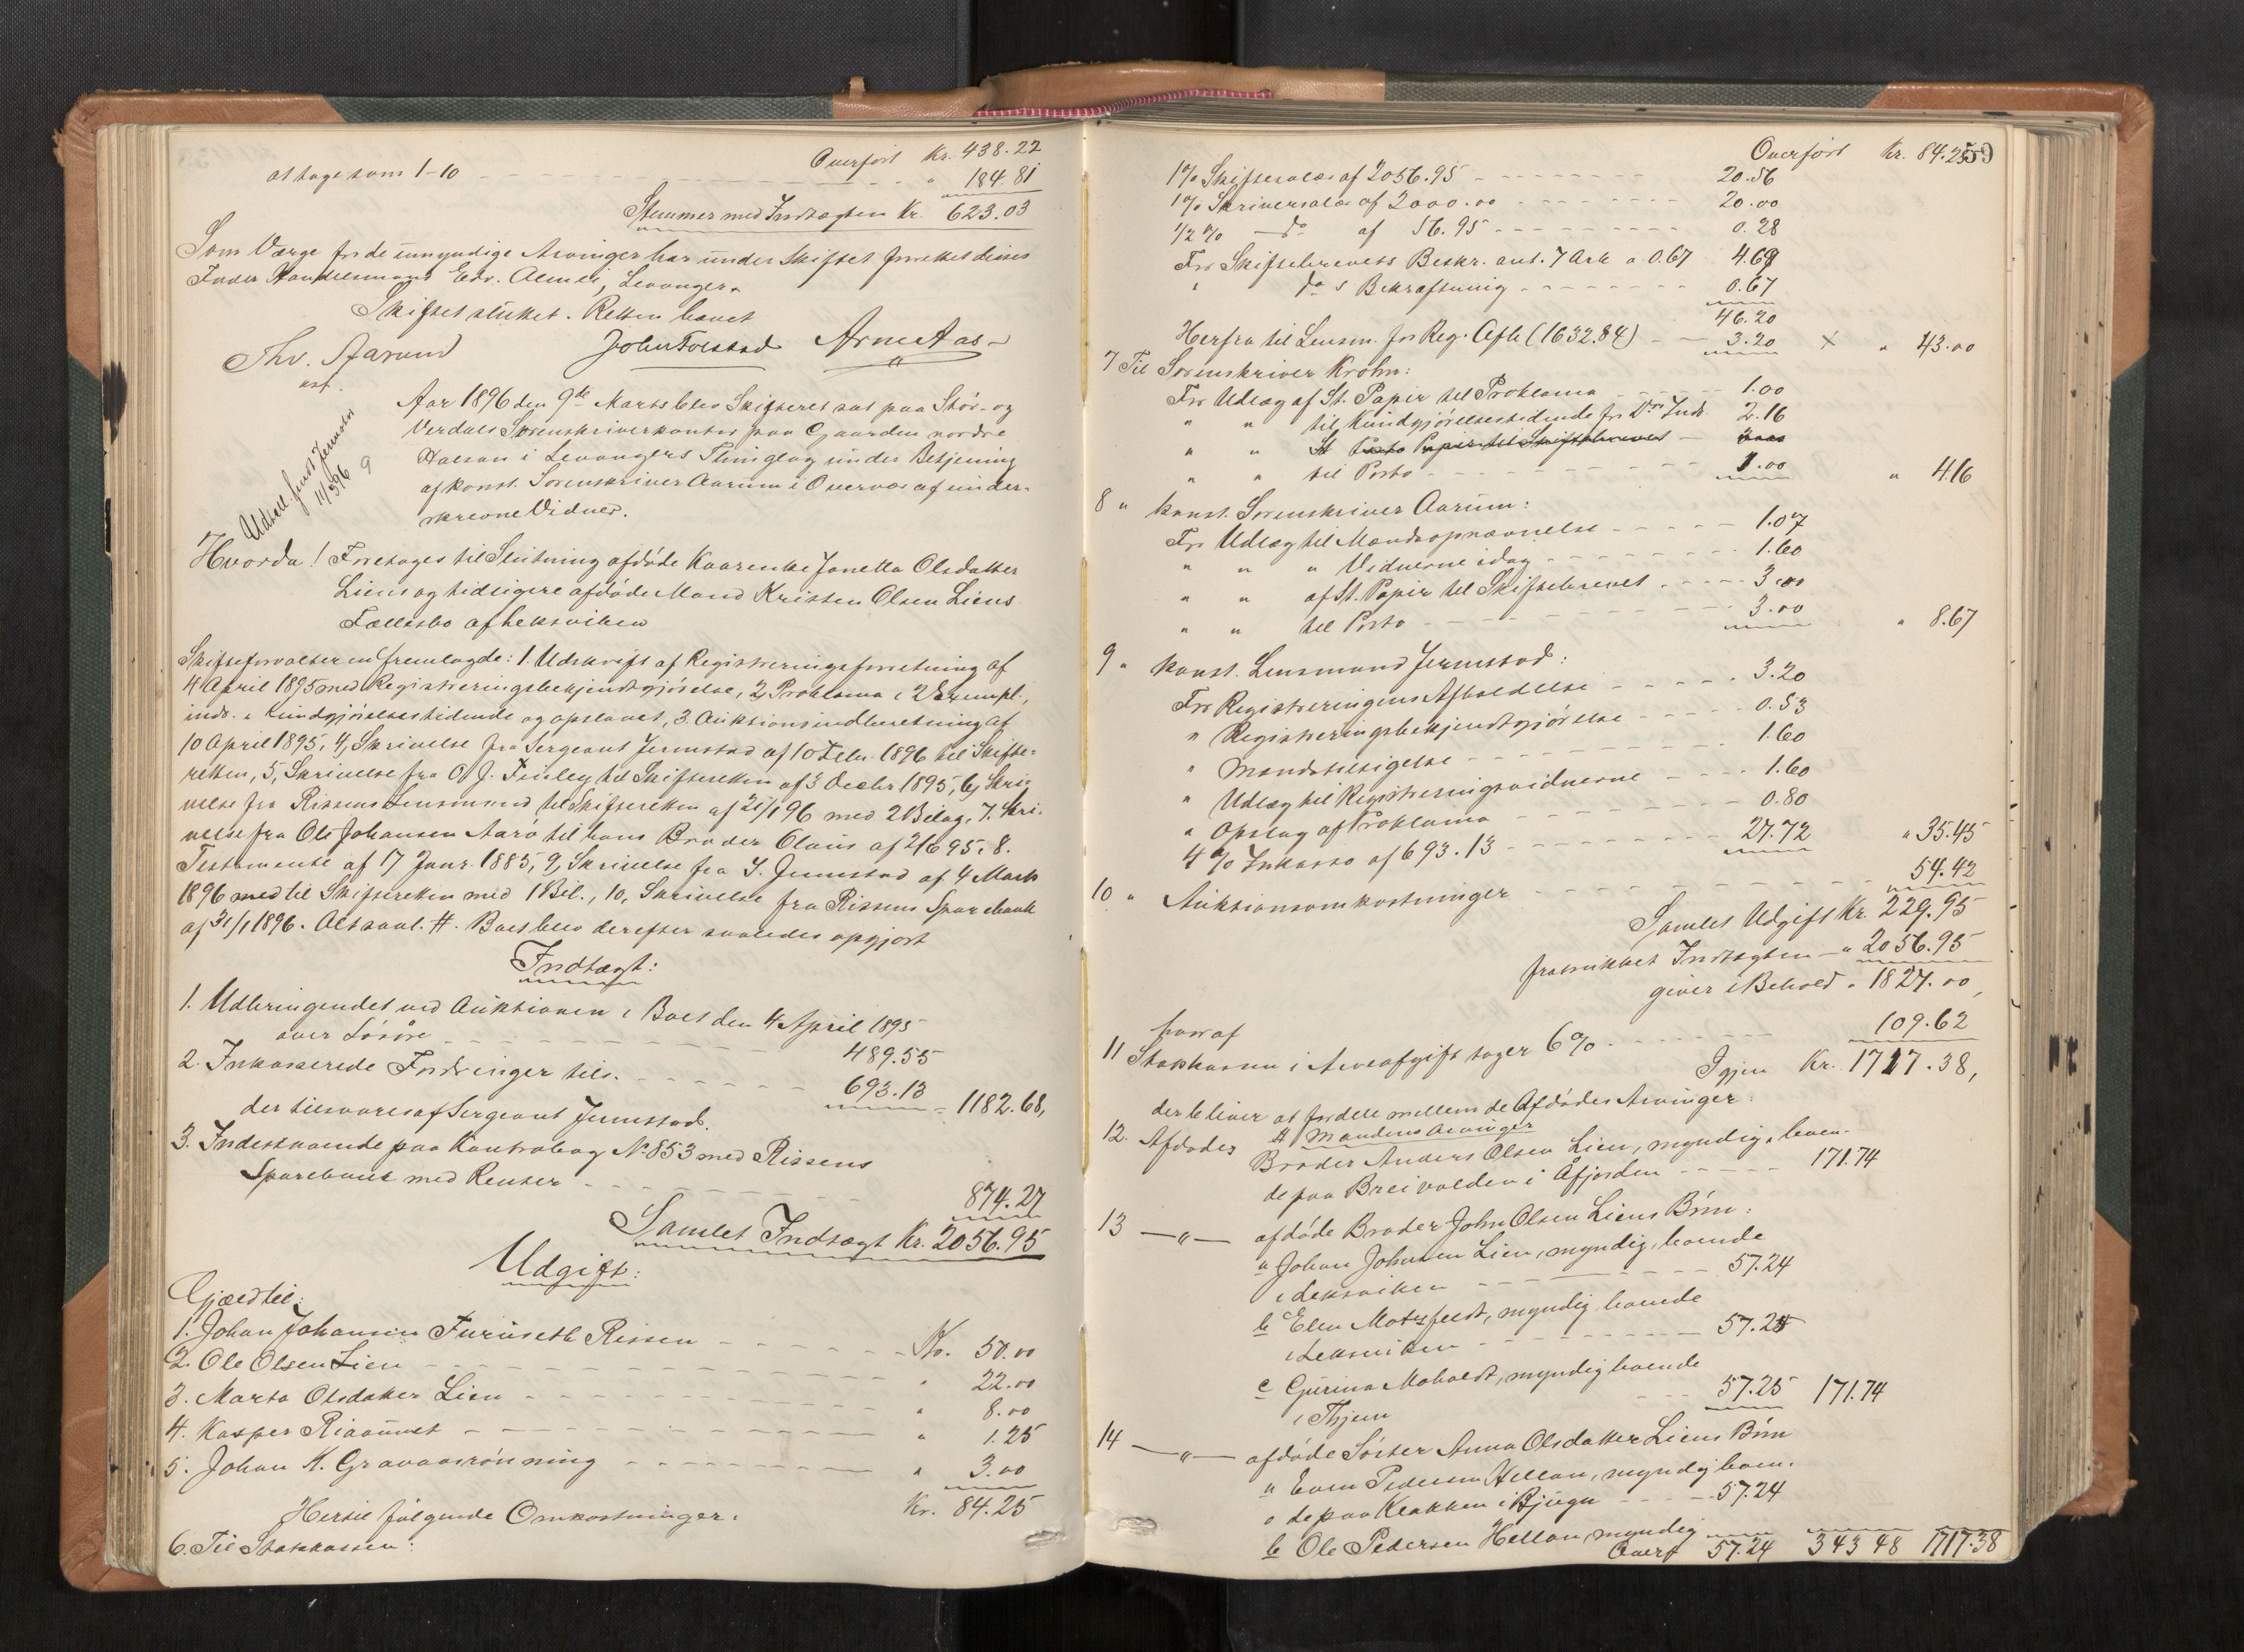 Overført Kr. 438.22
at tage som 1-10 " 184.81
Stemmer med Indtægten Kr. 623.03
Som Værge for de umyndige Arvinger har under Skiftet
Handelsmand Edv. Levanger.
Skiftet sluttet. Retten hævet
Thv. Aarum John Tolstad Arne Aas
kst.
Aar 1896 den 9de Marts blev Skifteret sat paa Stør- og
Verdals Sorenskriverkontor paa Gaarden nordre
i Levangers Thinglag under Betjening
af konst. Sorenskriver Aarum i Overvær af under-
skrevne Vidner.
Udskr. sendt Jermstad
11/3 96
9
Hvorda! Foretages til Slutning afdøde Kaarenke Janetta Olsdatter
Liens og tidligere afdøde Mand Kristen Olsen Liens
Fællesbo af Leksviken
Skifteforvalteren fremlagde: 1. Udskrift af Registreringsforretning af
4 April 1895 med Registreringsbekjendtgjørelse, 2, Proklama i 2 Exempl.,
indr. i Kundgjørelsestidende og opslaaet, 3. Auktionsindberetning af
10 April 1895, 4, Skrivelse fra Sergeant Jermstad af 10 Febr. 1896 til Skifte-
retten, 5, Skrivelse fra O. J. Finley til Skifteretten af 3 Decbr 1895, 6, Skri-
velse fra Rissens Lensmand til Skifteretten af 21/1 96 med 2 Bilag, 7. Skri-
velse fra Ole Johansen Aarø til hans Broder Olaus af 2/6 95. 8.
Testamente af 17 Janr. 1885, 9, Skrivelse fra S. Jermstad af 4 Marts
1896 med til Skifteretten med 1 Bil., 10, Skrivelse fra Rissens Sparebank
af 31/1 1896. Alt saal. #. Boet blev derefter saaledes opgjort
Indtægt:
1. Udbringendet ved Auktionen i Boet den 4 April 1895
over Løsøre 489.55
2. Inkasserede Fordringer tils. 693.13 = 1182.68,
der tilsvares af Sergeant Jermstad.
3. Indestaaende paa Kontrabog No 853 med Rissens
Sparebank med Renter 874.27
Samlet Indtægt Kr. 2056.95
Udgift:
Gjæld til:
1. Johan Johansen Furuseth Rissen Kr. 50.00
2. Ole Olsen Lien " 22.00
3. Marta Olsdatter Lien " 8.00
4. Kasper Riaaunet " 1.25
5. Johan K. Gravaasrønning " 3.00
Kr. 84.25
Hertil følgende Omkostninger:
6. Til Statskassen:
59
Overført Kr. 84.25
1% Skiftesalær af 2056.95 20.56
1% Skriversalær af 2000.00 20.00
1/2% do af 56.95 0.28
For Skiftebrevets Beskr. ant. 7 Ark a 0.67 4.69
" do s Bekræftning 0.67
46.20
Herfra til Lensm. for Reg. Afh (1632.84) 3.20 × " 43.00
7 Til Sorenskriver Krohn:
For Udlæg af St. Papir til Proklama 1.00
" " til Kundgjørelsestidende for Indr. 2.16
" " St Porto Papir til Skiftebrevet
" " til Porto 1.00 " 4.16
8 " konst. Sorenskriver Aarum:
For Udlæg til Mandsopnævnelse 1.07
" " " Vidnerne idag 1.60
" " af St. Papir til Skiftebrevet 3.00
" " til Porto 3.00 " 8.67
9 " konst. Lensmand Jermstad:
For Registreringens Afholdelse 3.20
" Registreringsbekjendtgjørelse 0.53
" Mandstilsigelse 1.60
" Udlæg til Registreringsvidnerne 1.60
" Opslag af Proklama 0.80
4% Inkasso af 693.13 27.72 " 35.45
10 " Auktionsomkostninger 54.42
Samlet Udgift Kr. 229.95
fratrukket Indtægten " 2056.95
giver i Behold " 1827.00,
hvoraf
11 Statskassen i Arveafgift tager 6% 109.62
Igjen Kr. 1717.38,
der bliver at fordele mellem de Afdødes Arvinger:
A Mandens Arvinger
12. Afdødes Broder Anders Olsen Lien, myndig, boen-
de paa Breivolden i Åfjorden 171.74
13 —"— afdøde Broder John Olsen Liens Børn:
a Johan Johnsen Lien, myndig, boende
i Leksviken 57.24
b Elen Motzfeldt, myndig boende
i Leksviken 57.25
c Gurina Moholdt, myndig boende
i Thjem 57.25 171.74
14 —"— afdøde Søster Anna Olsdatter Liens Børn
a Even Pedersen Hellan, myndig boen-
de paa Klakken i Bjugn 57.24
b Ole Pedersen Hellan myndig
Overf 57.24 343 48 1717.38